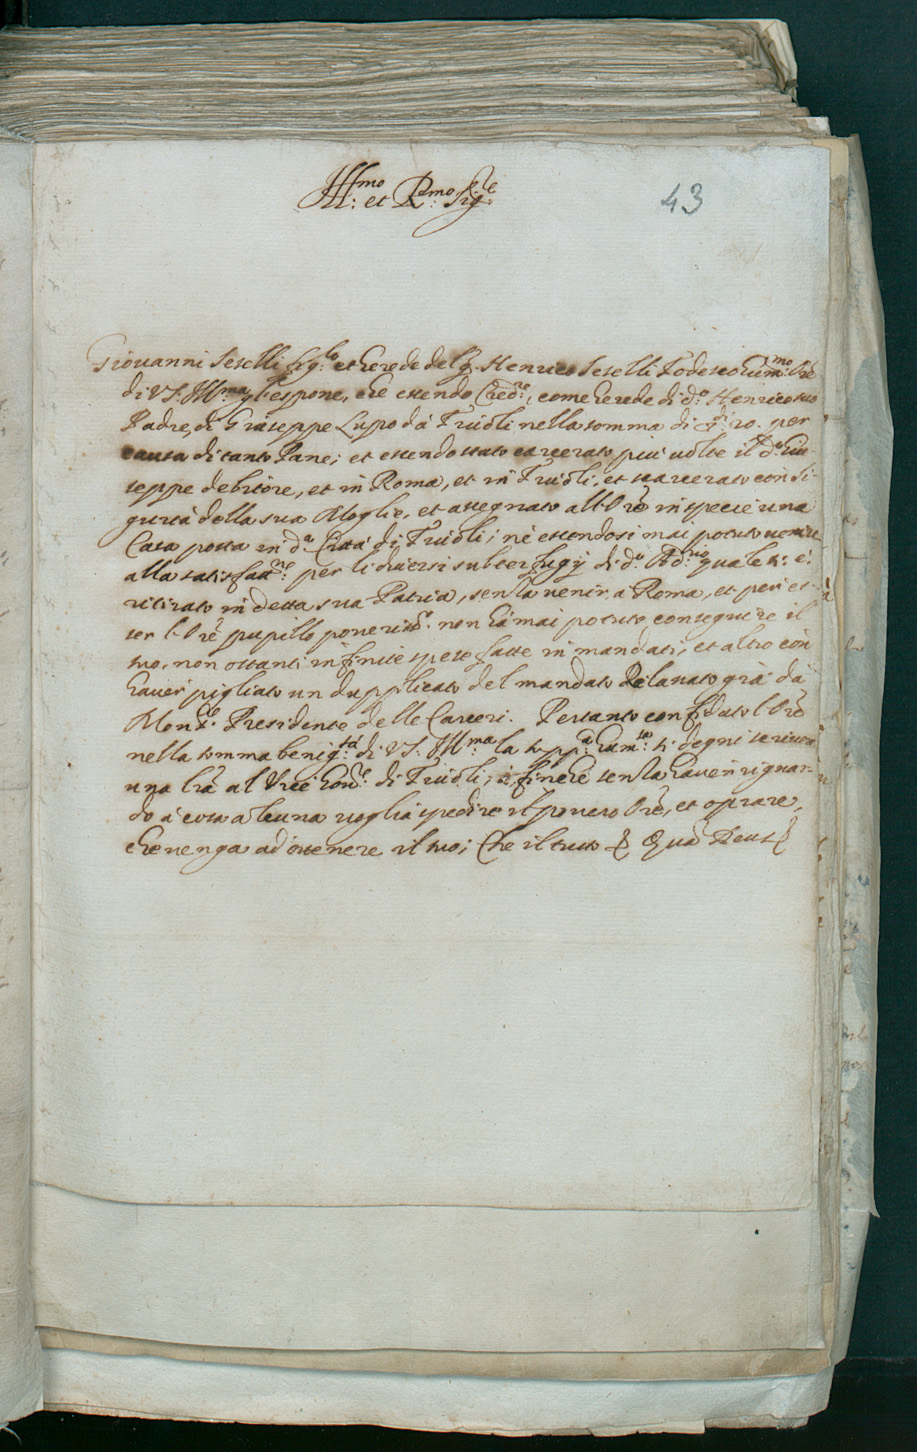 Ill:mo et R:mo Sig:re
43
Giovanni Seselli fig:lo et herede del q. Henrico Seselli Todesco hum:mo Ore
di V.S. Ill:ma gl'espone, che essendo Cred:re, come herede di d:o Henrico suo
Padre, di Giuseppe Lupo da Tivoli nella somma di 20. per
causa di tanto Pane; et essendo stato carcerato più volte il d:o Giu-
seppe debitore, et in Roma, et in Tivoli, et scarcerato con si-
gurtà della sua Moglie, et assegnato all'Ore in specie una
Casa posta in d:a Città di Tivoli; nè essendosi mai potuto venire
alla satisfatt:ne per li diversi subterfugij di d:o quale si è
ritirato in detta sua Patria, senza venir à Roma, et per es-
ser l'Ore pupillo poveriss:o non hà mai potuto conseguire il
suo, non ostanti infinite spese fatte in mandati, et altro con
haver pigliato un dupplicato del mandato Rilasato già da
Mons:re Presidente delle Carceri. Pertanto confidato l'Ore
nella somma benig:tà di V.S. Ill:ma la supp:ca hum:te si degni scriver
una lra al Vice Gov:re di Tivoli, senza haver riguar-
do à cosa alcuna voglia spedire il povero Ore, et oprare,
che venga ad ottenere il suo; Che il tutto Quà Deus